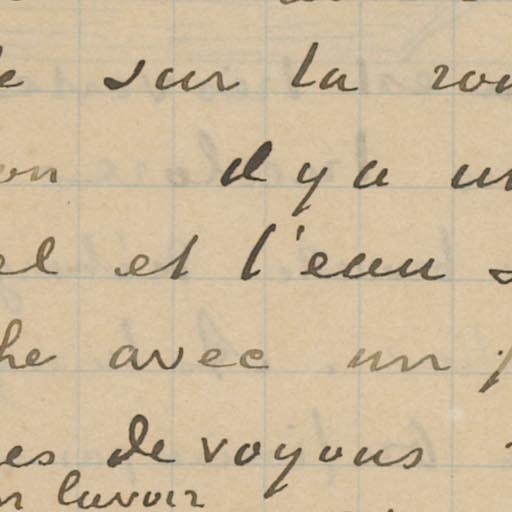 e sur la rou
on il y a un
el et l'eau s
he avec un f
es de voyons
n lavoir